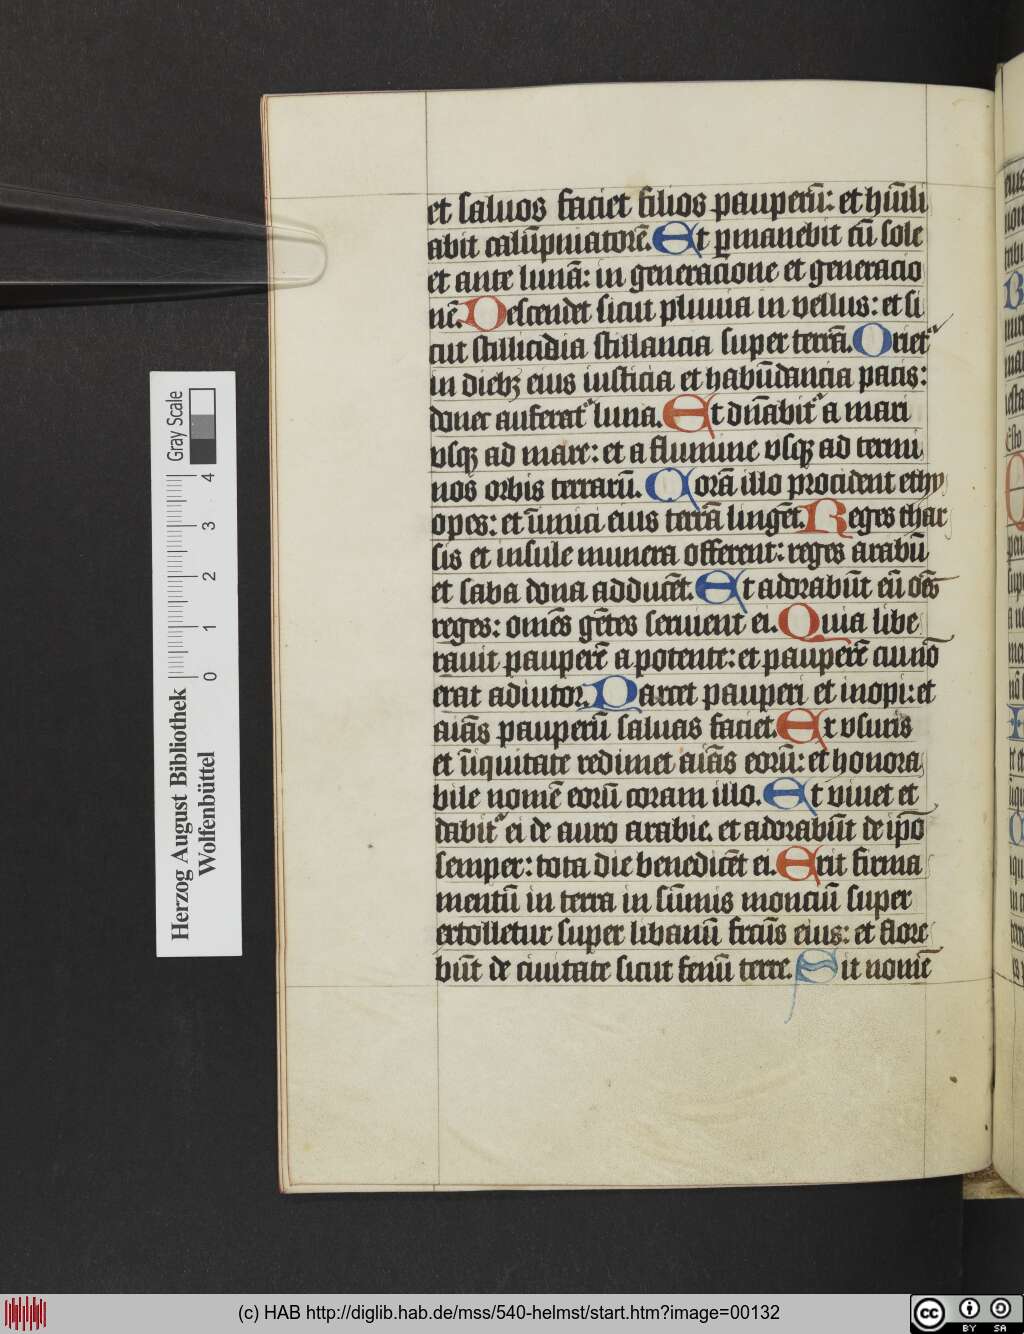 et saluos faciet filios pauperū: et hūili
abit calūpniatorē. Et ꝑmanebit cū sole
et ante lunā: in generacione et generacio
nē. Descendet sicut pluuia in vellus: et si
cut stillicidia stillancia super terrā. Oriet᷑
in diebꝫ eius iusticia et habūdancia pacis:
donec auferat᷑ luna. Et dn̄abit᷑ a mari
vsqꝫ ad mare: et a flumine vsqꝫ ad termi
nos orbis terrarū. Corā illo procident ethy
opes: et īimici eius terrā lingēt. Reges thar
sis et insule munera offerent: reges arabū
et saba dona adducēt. Et adorabūt eū oēs
reges: omēs gētes seruient ei. Quia libe
rauit pauperē a potente: et pauperē cui nō
erat adiutor. Parcet pauperi et inopi: et
aīas pauperū saluas faciet. Ex vsuris
et īiquitate redimet aīas eorū: et honora
bile nomē eorū coram illo. Et viuet et
dabit᷑ ei de auro arabie. et adorabūt de ip̄o
semper: tota die benedicēt ei. Erit firma
mentū in terra in sūmis monciū super
extolletur super libanū fructus eius: et flore
būt de ciuitate sicut fenū terre. Sit nomē
Herzog August Bibliothek
Wolfenbüttel
0 1 2 3 4
Gray Scale
(c) HAB http://diglib.hab.de/mss/540-helmst/start.htm?image=00132
cc BY SA